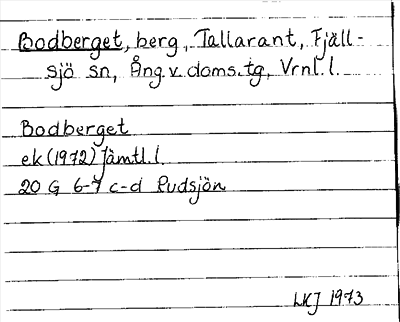 Bodberget, berg, Tallarant, Fjäll-
sjö sn, Ång. v. doms. tg, Vrnl. l.
Bodberget
ek (1972) Jämtl. l.
20 G 6-7 c-d Rudsjön
LKJ 1973